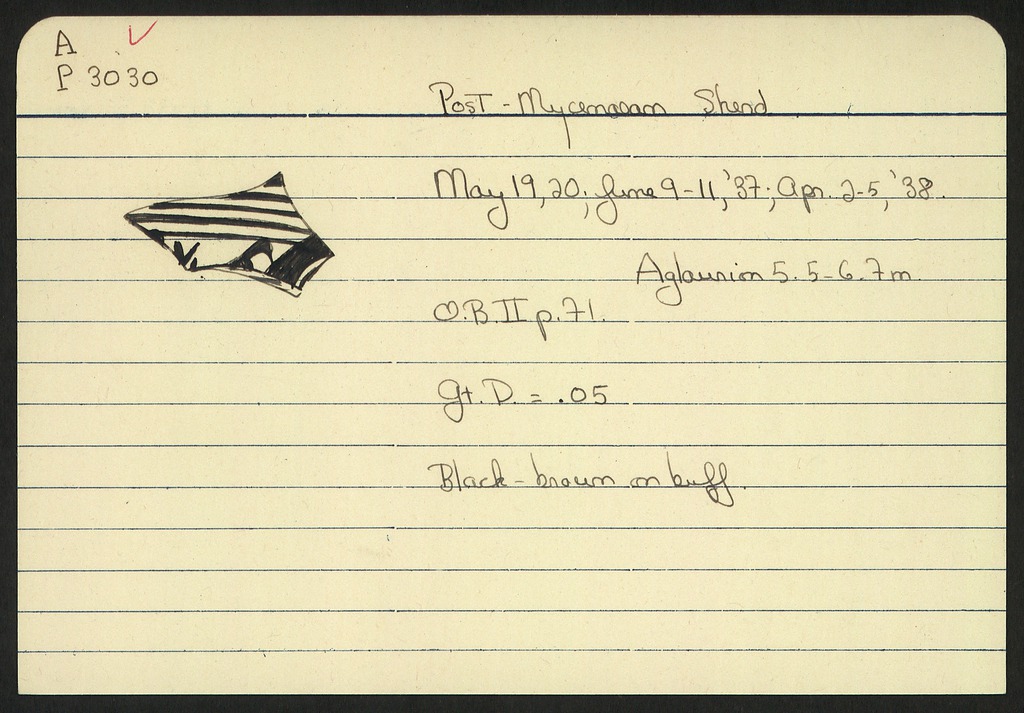 A ✓
P 3030
Post-Mycenaean Sherd
May 19, 20; June 9-11, '37; Apr. 2-5, '38.
Aglaurion 5.5-6.7m
O.B. II p. 71.
Gt. D. = .05
Black-brown on buff.